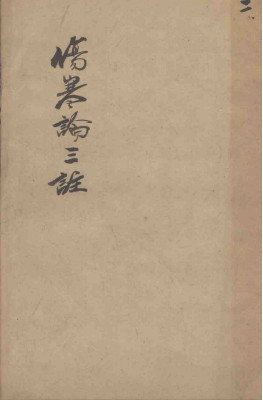 傷寒論三註
二